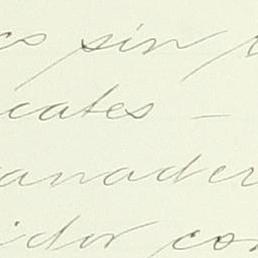 es sin p
icates -
anader
idor con